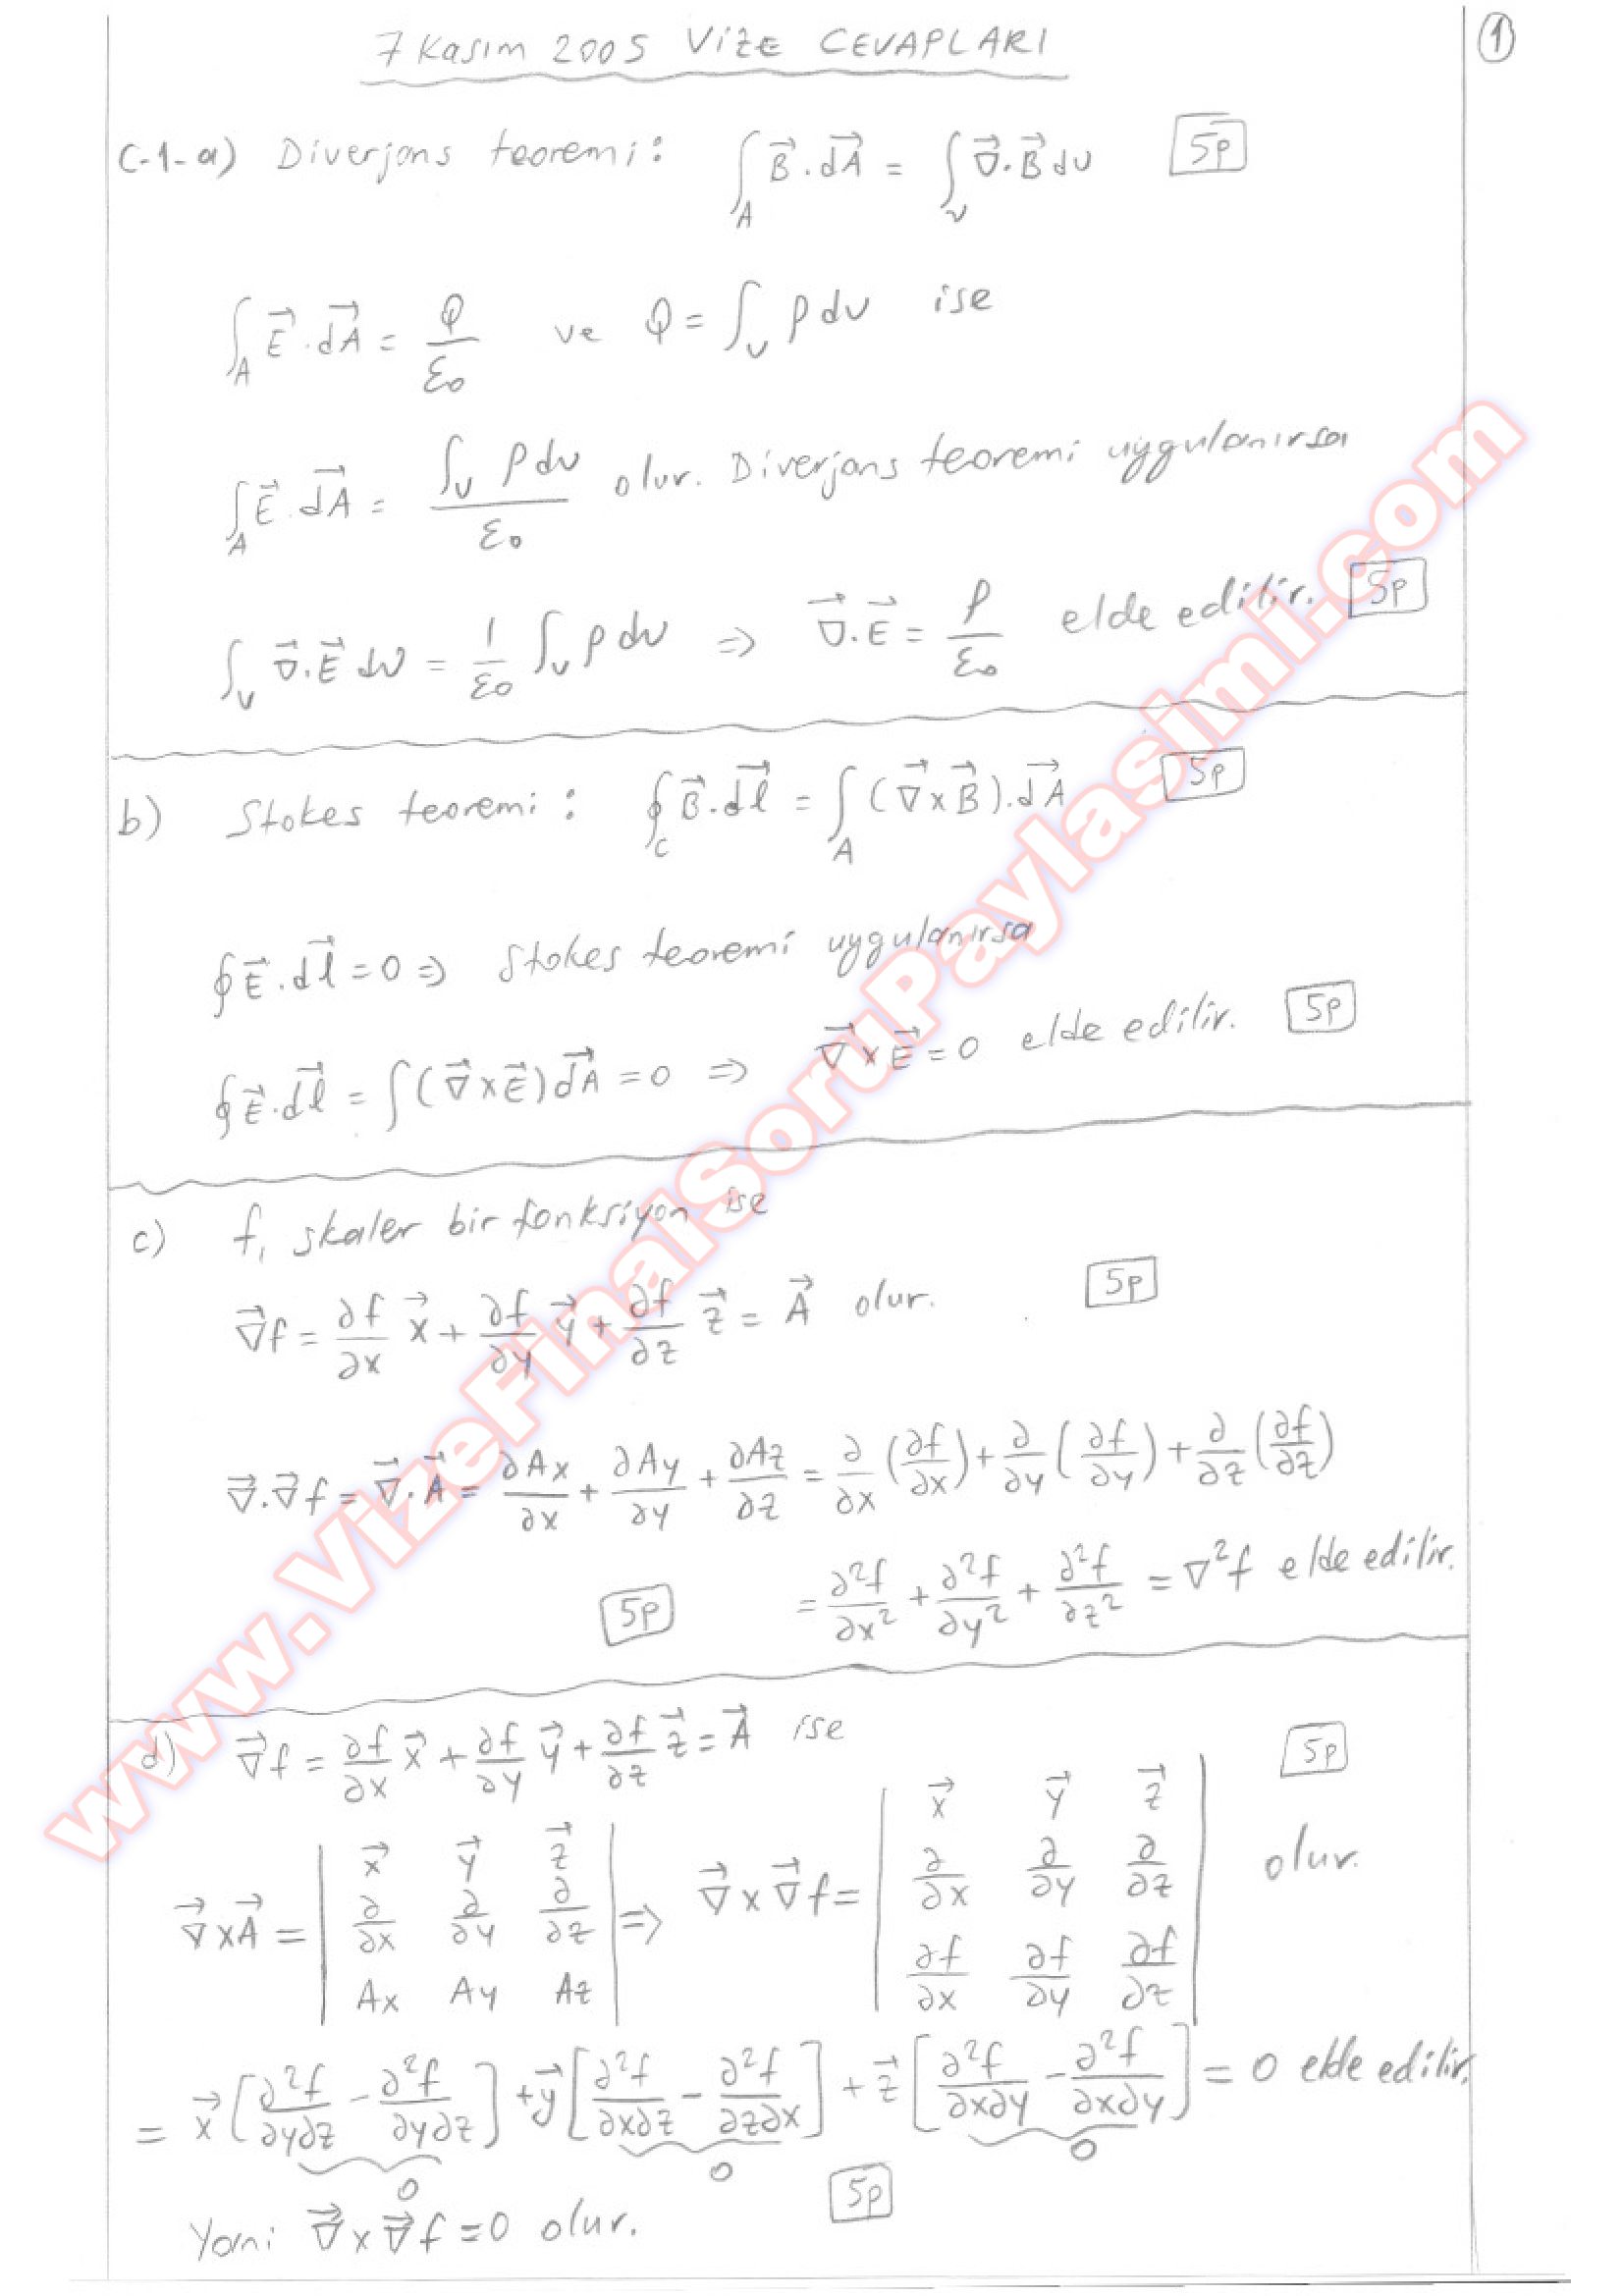 7 Kasım 2005 VİZE CEVAPLARI
①
C-1-a) Diverjans teoremi: ∫_A B⃗.dA⃗ = ∫_v ∇⃗.B⃗ dv 5p
∫_A E⃗.dA⃗ = Q/ε₀ ve Q = ∫_v ρ dv ise
∫_A E⃗.dA⃗ = ∫_v ρ dv / ε₀ olur. Diverjans teoremi uygulanırsa
∫_v ∇⃗.E⃗ dv = 1/ε₀ ∫_v ρ dv ⇒ ∇⃗.E⃗ = ρ/ε₀ elde edilir. 5p
b) Stokes teoremi: ∮_C B⃗.dl⃗ = ∫_A (∇⃗xB⃗).dA⃗ 5p
∮E⃗.dl⃗ = 0 ⇒ Stokes teoremi uygulanırsa
∮E⃗.dl⃗ = ∫(∇⃗xE⃗)dA⃗ = 0 ⇒ ∇⃗xE⃗ = 0 elde edilir. 5p
c) f, skaler bir fonksiyon ise
∇⃗f = ∂f/∂x x⃗ + ∂f/∂y y⃗ + ∂f/∂z z⃗ = A⃗ olur. 5p
∇⃗.∇⃗f = ∇⃗.A⃗ = ∂Ax/∂x + ∂Ay/∂y + ∂Az/∂z = ∂/∂x (∂f/∂x) + ∂/∂y (∂f/∂y) + ∂/∂z (∂f/∂z)
5p = ∂²f/∂x² + ∂²f/∂y² + ∂²f/∂z² = ∇²f elde edilir.
d) ∇⃗f = ∂f/∂x x⃗ + ∂f/∂y y⃗ + ∂f/∂z z⃗ = A⃗ ise 5p
∇⃗xA⃗ = | x⃗ y⃗ z⃗ ; ∂/∂x ∂/∂y ∂/∂z ; Ax Ay Az | ⇒ ∇⃗x∇⃗f = | x⃗ y⃗ z⃗ ; ∂/∂x ∂/∂y ∂/∂z ; ∂f/∂x ∂f/∂y ∂f/∂z | olur.
= x⃗ [∂²f/∂y∂z - ∂²f/∂y∂z] + y⃗ [∂²f/∂x∂z - ∂²f/∂z∂x] + z⃗ [∂²f/∂x∂y - ∂²f/∂x∂y] = 0 elde edilir.
0 0 0
Yani ∇⃗x∇⃗f = 0 olur. 5p
www.VizeFinalSoruPaylasimi.com